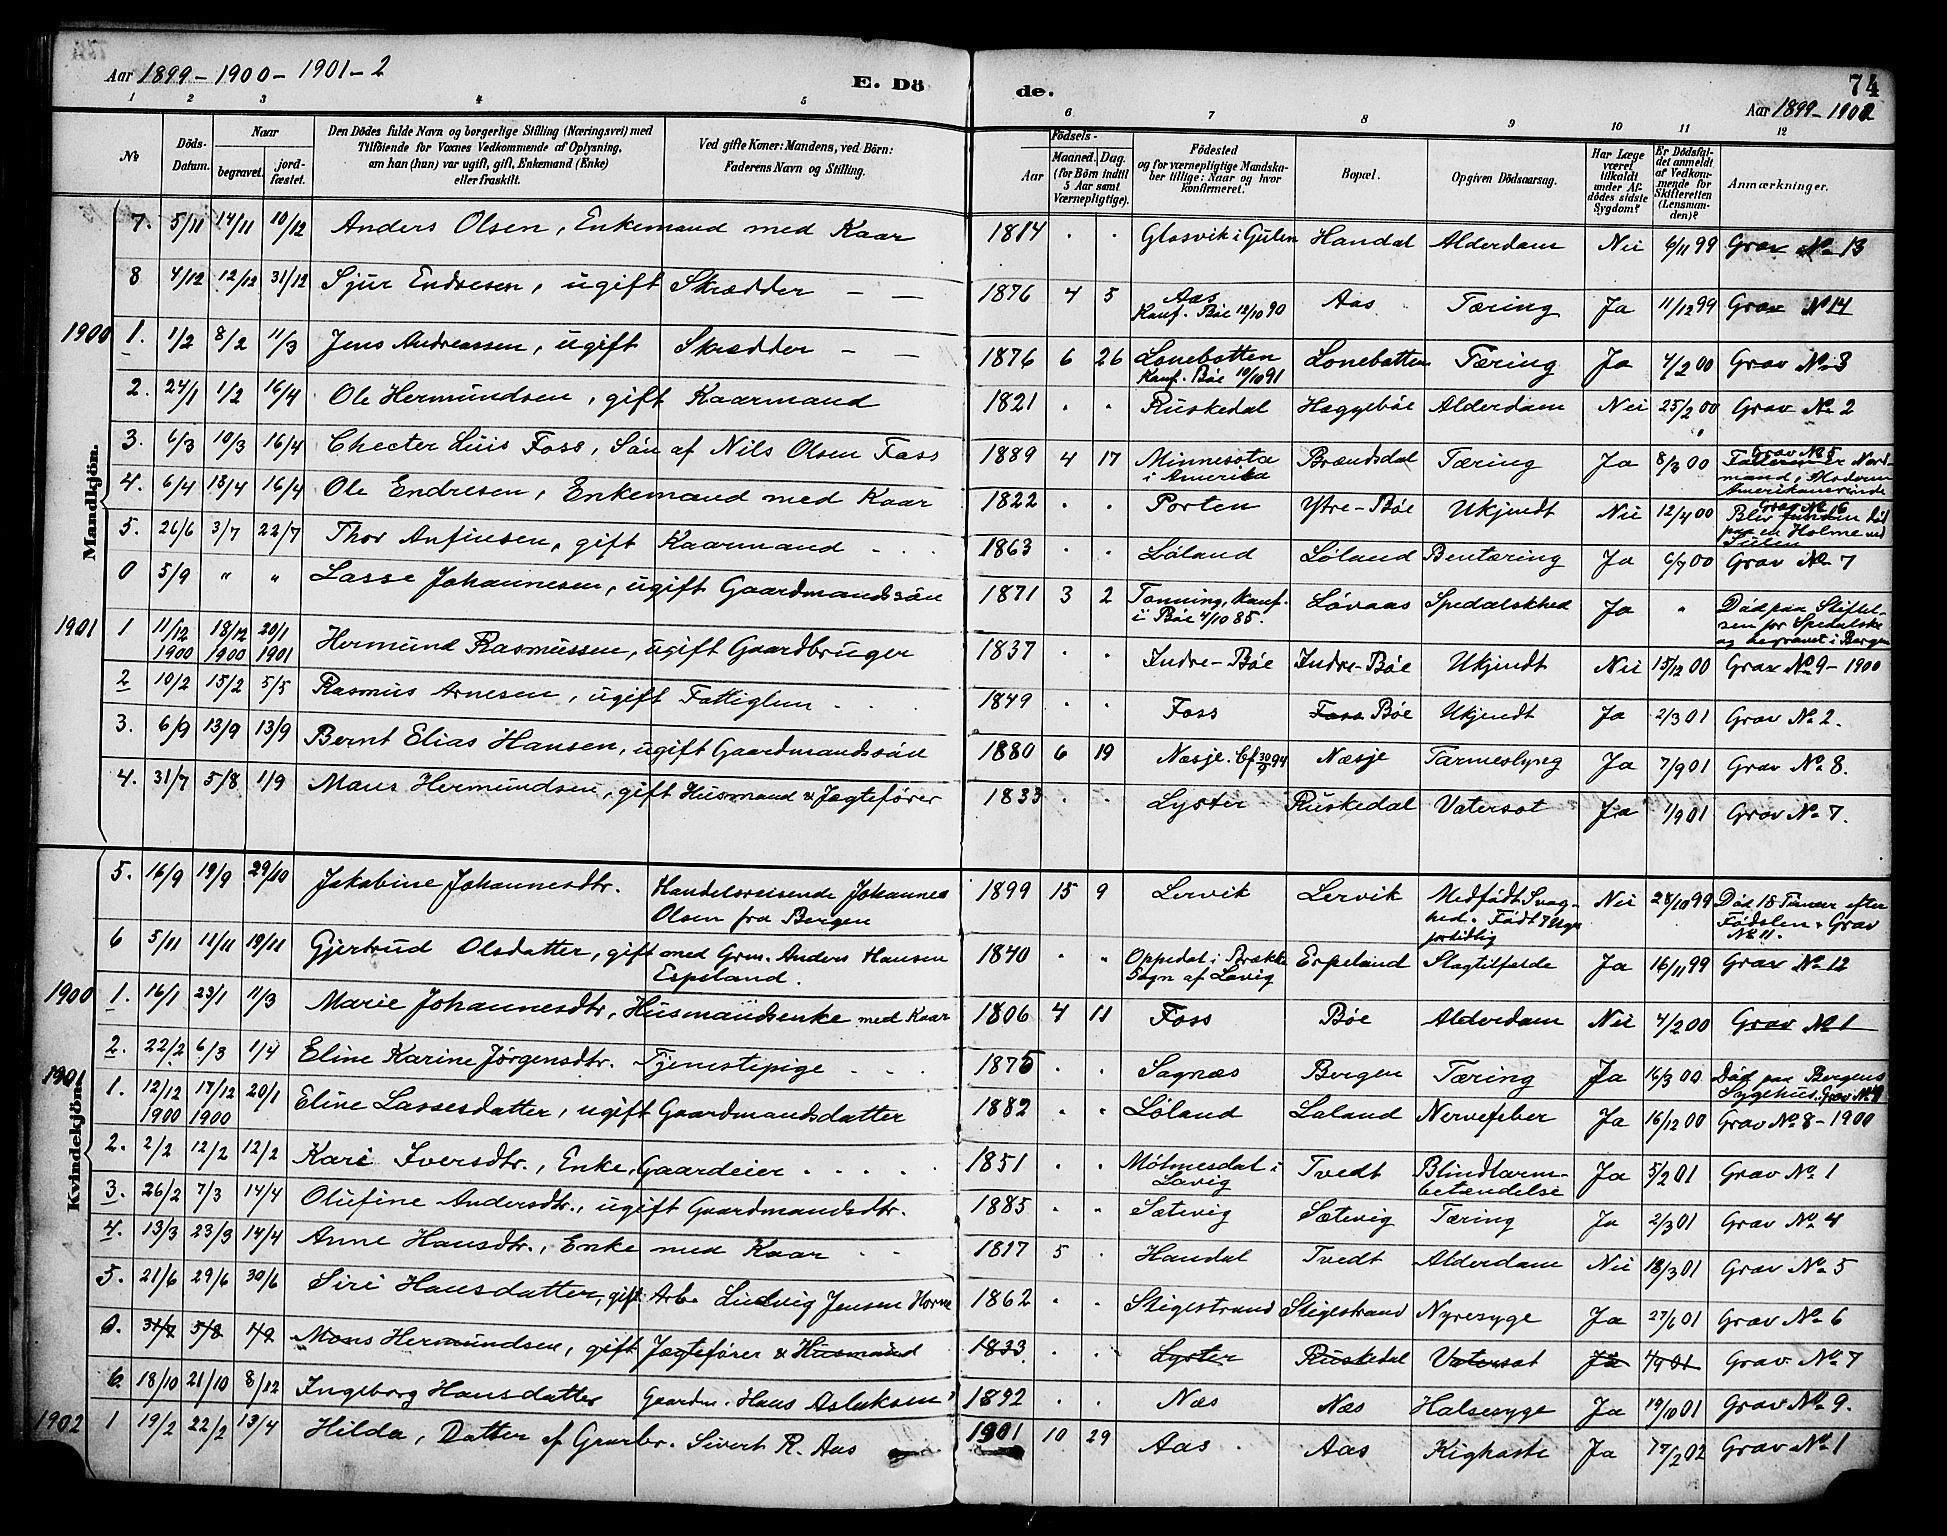 Aar 1899 - 1900 - 1901 - 2
E. Dö
de.
74
Aar 1899 - 1902
1 2 3 4 5 6 7 8 9 10 11 12
№
Döds-Datum.
Naar
begravet.
jord-fæstet.
Den Dödes fulde Navn og borgerlige Stilling (Næringsvei) med
Tilföiende for Voxnes Vedkommende af Oplysning,
om han (hun) var ugift, gift, Enkemand (Enke)
eller fraskilt.
Ved gifte Koner: Mandens, ved Börn:
Faderens Navn og Stilling.
Födsels-
Aar
Maaned. Dag.
(for Börn indtil
5 Aar samt
Værnepligtige).
Födested
og for værnepligtige Mandska-
ber tillige: Naar og hvor
konfirmeret.
Bopæl.
Opgiven Dödsaarsag.
Har Læge
været
tilkaldt
under Af-
dödes sidste
Sygdom?
Er Dödsfal-
det anmeldt
af Vedkom-
mende for
Skifteretten
(Lensman-
den)?
Anmærkninger.
Mandkjön.
7. 5/11 14/11 10/12 Anders Olsen, Enkemand med Kaar 1814 . . Glosvik i Gulen Handal Alderdom Nei 6/11 99 Grav № 13
8 4/12 12/12 31/12 Sjur Endresen, ugift Skrædder — — 1876 4 5 Aas Konf. Böe 12/10 90 Aas Tæring Ja 11/12 99 Grav № 14
1900 1. 1/2 8/2 11/3 Jens Andreassen, ugift Skrædder — — 1876 6 26 Lonebotten Konf. Böe 10/10 91 Lonebotten Tæring Ja 4/2 00 Grav № 3
2. 24/1 1/2 16/4 Ole Hermundsen, gift Kaarmand 1821 . . Ruskedal Haggeböe Alderdom Nei 25/2 00 Grav № 2
3. 6/3 10/3 16/4 Checter Luis Foss, Sön af Nils Olsen Foss 1889 4 17 Minnesota i Amerika Brændsdal Tæring Ja 8/3 00 Grav № 5 Faderen er Nord-mand, Moderen Amerikanerinde
4. 6/4 13/4 16/4 Ole Endresen, Enkemand med Kaar 1822 . . Porten Ytre-Böe Ukjendt Nei 12/4 00 Grav № 6 Blev funden död paa en Holme ved
5. 26/6 3/7 22/7 Thor Anfinsen, gift Kaarmand . . . 1863 . . Löland Löland Bentæring Ja 6/7 00 Grav № 7
0 5/9 " " Lasse Johannesen, ugift Gaardmandssön 1871 3 2 Tonning, Konf. i Böe 4/10 85. Lövaas Spedalskhed Ja " Död paa Stiftel-sen for Spedalske og begravet i Bergen
1901 1 11/12 1900 18/12 1900 20/1 1901 Hermund Rasmussen, ugift Gaardbruger 1837 . . Indre-Böe Indre-Böe Ukjendt Nei 15/12 00 Grav № 9 - 1900
2 10/2 15/2 5/5 Rasmus Arnesen, ugift Fattiglem . . . 1849 . . Foss Foss Böe Ukjendt Ja 2/3 01 Grav № 2.
3. 6/9 13/9 13/9 Bernt Elias Hansen, ugift Gaardmandssön 1880 6 19 Næsje. Cf 30/9 94 Næsje Tarmeslyng Ja 7/9 01 Grav № 8.
4. 31/7 5/8 1/9 Mons Hermundsen, gift Husmand & Jægtefører 1833 . . Lyster Ruskedal Vatersot Ja 1/9 01 Grav № 7.
Kvindekjön.
5. 16/9 19/9 29/10 Jakobine Johannesdtr. Handelsreisende Johannes Olsen fra Bergen 1899 15 9 Lervik Lervik Medfödt Svag-hed. Födt 7 Uger fortidlig Nei 28/10 99 Död 18 Timer efter Födselen. Grav № 11.
6 5/11 11/11 19/11 Gjertrud Olsdatter, gift med Grm. Anders Hansen Espeland. 1840 . " Oppedal i Brække Sogn af Lavig Espeland Slagtilfælde Ja 16/11 99 Grav № 12
1900 1. 16/1 23/1 11/3 Marie Johannesdtr, Husmandsenke med Kaar 1806 4 11 Foss Böe Alderdom Nei 4/2 00 Grav № 1
2. 22/2 6/3 1/4 Eline Karine Jørgensdtr. Tjenestepige . . . 1875 . . Sognæs Bergen Tæring Ja 16/3 00 Död paa Bergens Sygehus. Grav № 4
1901 1. 12/12 1900 17/12 1900 20/1 Eline Lassesdatter, ugift Gaardmandsdatter 1882 . " Löland Loland Nervefeber Ja 16/12 00 Grav № 8 - 1900
2. 2/2 12/2 12/2 Kari Iversdtr., Enke, Gaardeier . . . . . 1851 . " Mölmesdal i Lavig Tvedt Blindtarm-betændelse Ja 5/2 01 Grav № 1
3. 26/2 7/3 14/4 Olufine Andersdtr., ugift Gaardmandsdtr. 1885 . " Sætevig Sætevig Tæring Ja 2/3 01 Grav № 4
4. 13/3 23/3 14/4 Anne Hansdtr., Enke med Kaar . . 1817 5 . Handal Tvedt Alderdom Nei 18/3 01 Grav № 5
5. 21/6 29/6 30/6 Siri Hansdatter, gift Arb. Ludvig Jensen Horne 1862 . . Stigestrand Stigestrand Nyresyge Ja 27/6 01 Grav № 6
0. 31/7 5/8 1/9 Mons Hermundsen, gift Jægtefører & Husmand 1833 . . Lyster Ruskedal Vatersot Ja 1/9 01 Grav № 7
6. 18/10 21/10 8/12 Ingeborg Hansdatter Gaardm. Hans Aslaksen 1892 . . Næs Næs Halsesyge Ja 19/10 01 Grav № 9.
1902 1 19/2 22/2 13/4 Hilda, Datter af Grurbr. Sivert R. Aas 1901 10 29 Aas . Aas Kighoste Ja 17/2 02 Grav № 1